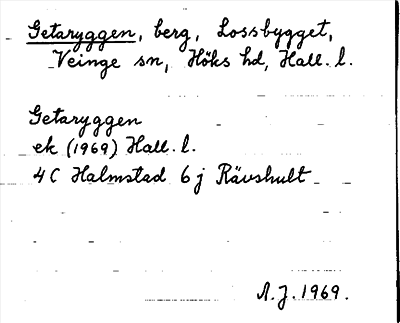 Getaryggen, berg, Lossbygget,
Veinge sn, Höks hd, Hall. l.
Getaryggen
ek (1969) Hall. l.
4C Halmstad 6j Rävshult
A.J. 1969.